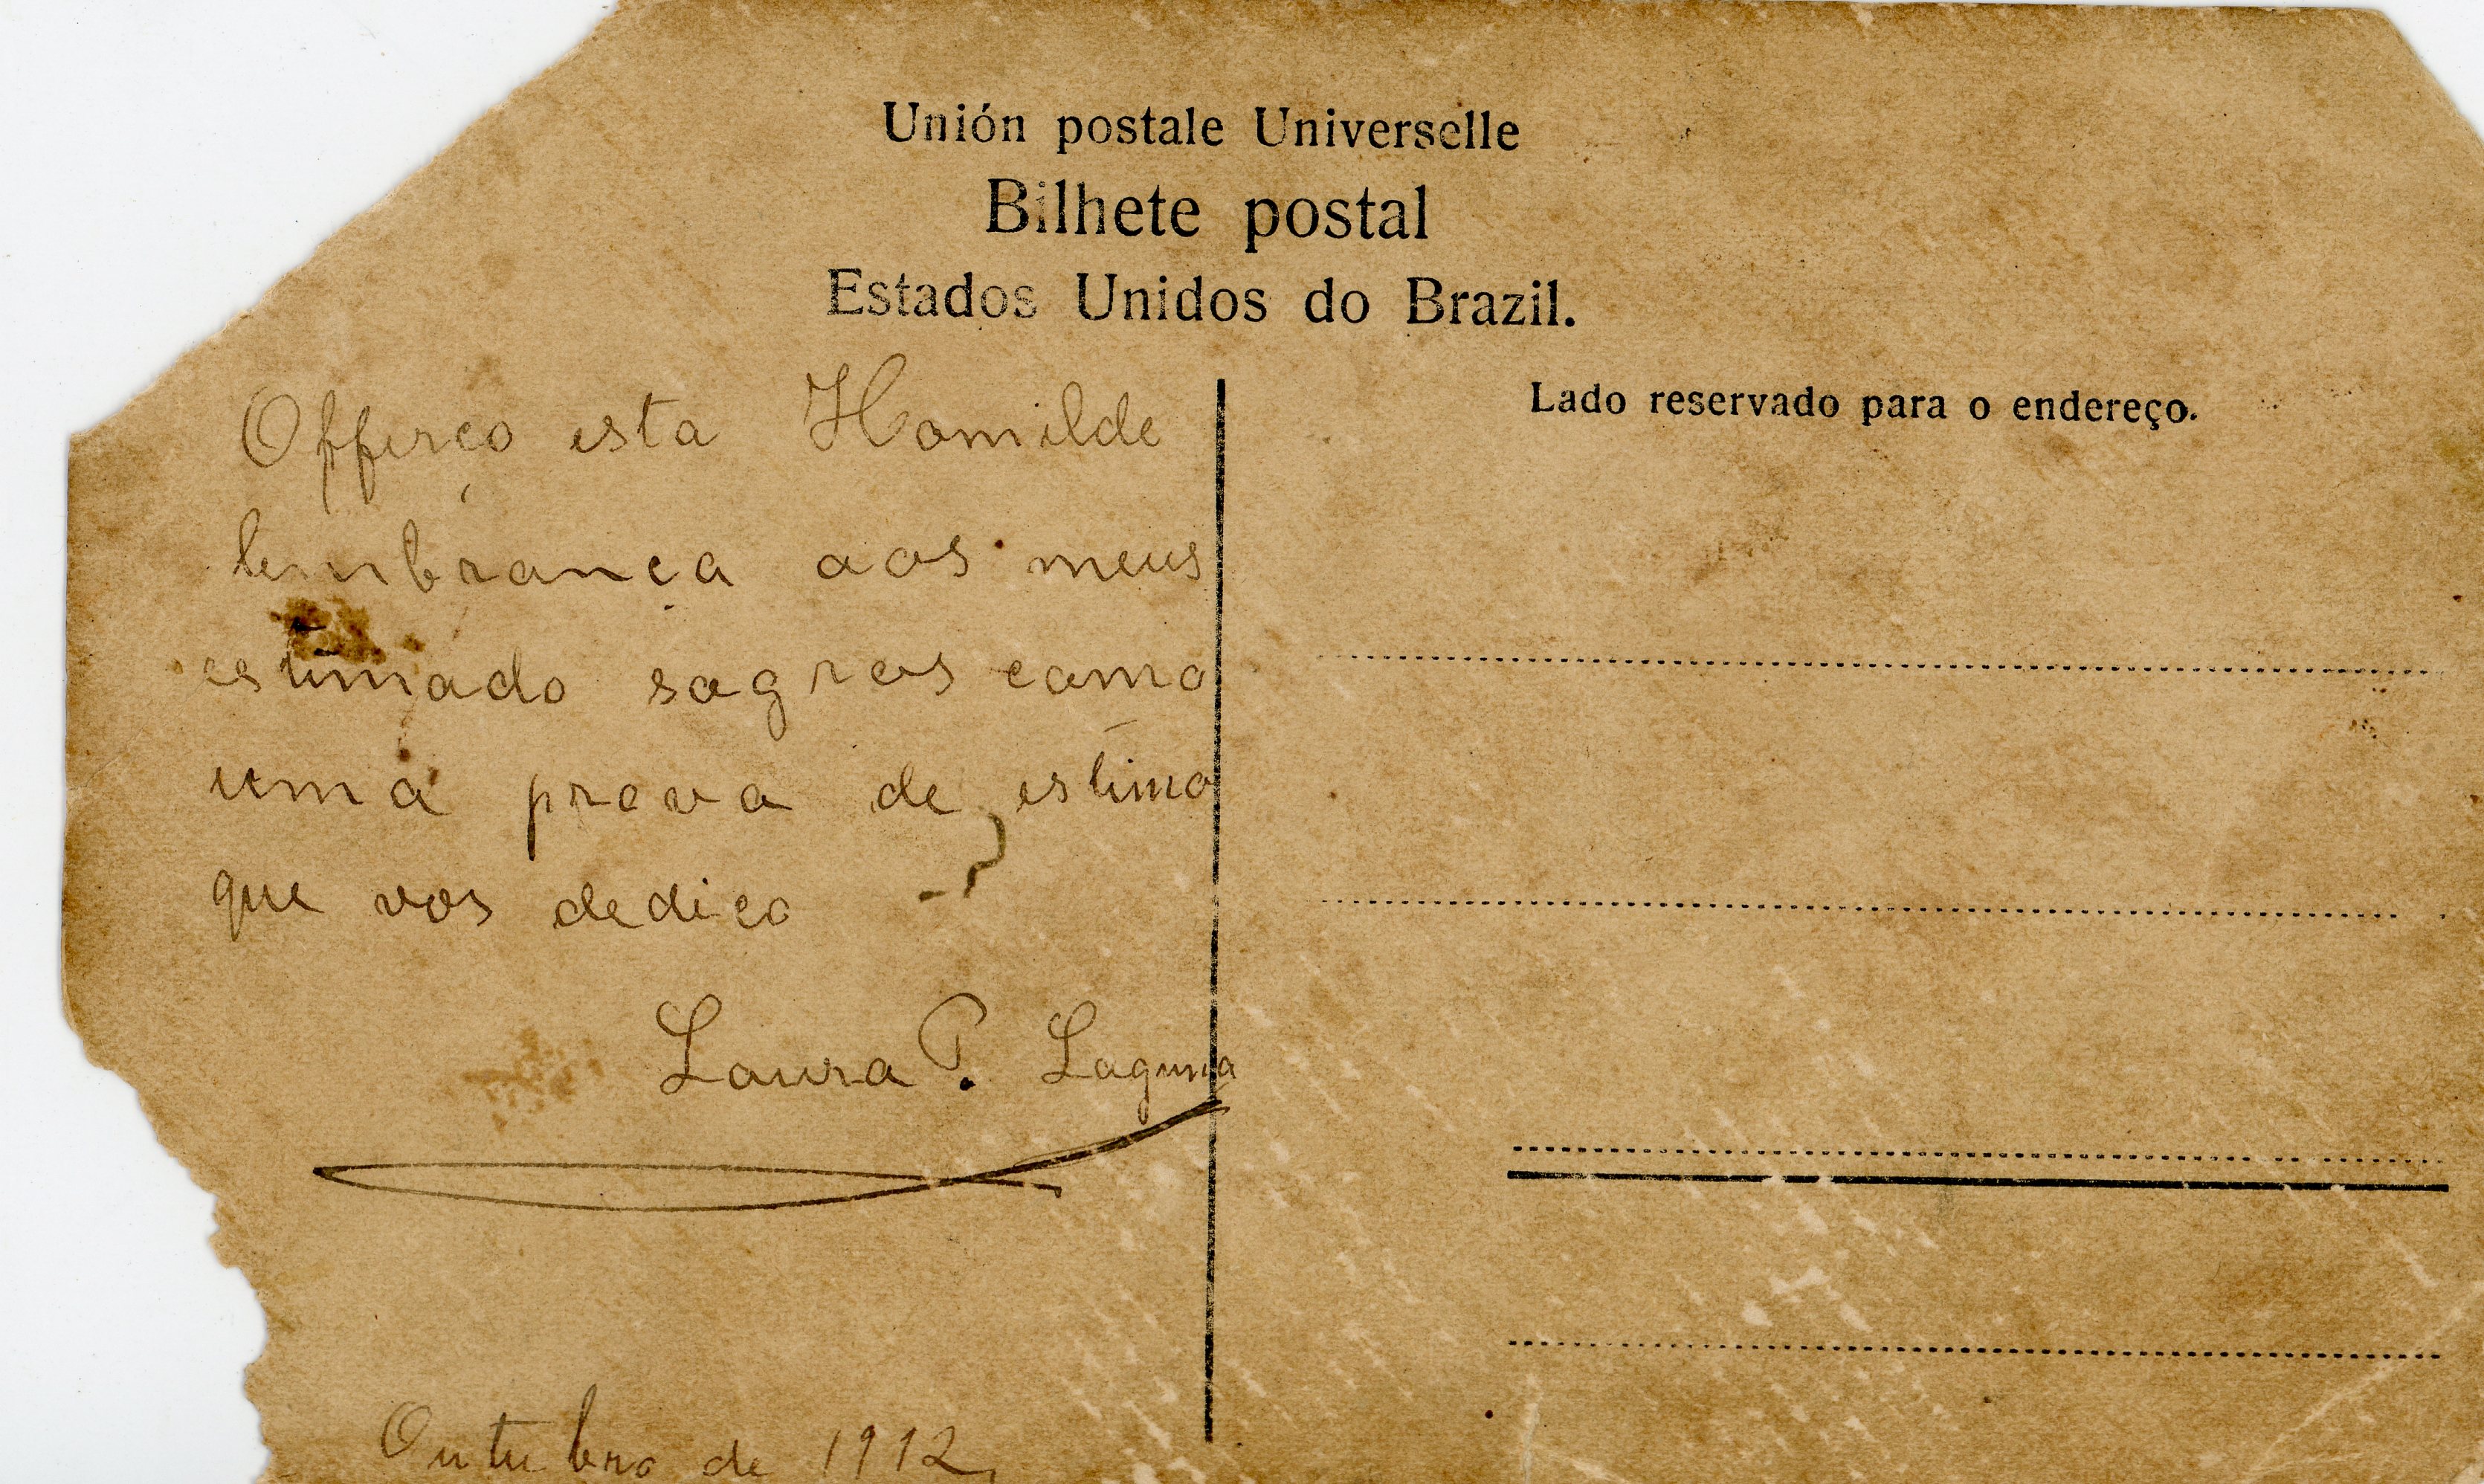 Unión postale Universelle
Bilhete postal
Estados Unidos do Brazil.
Lado reservado para o endereço.
Offereço esta Homilde
lembrança aos meus
estimado sogros como
uma prova de estima
que vos dedico
Laura P. Laguna
Outubro de 1912